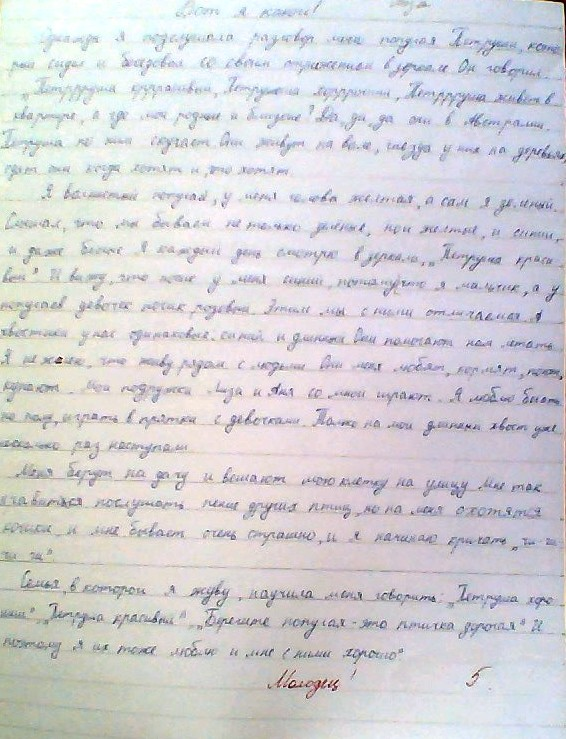 Вот я какой! Лиза
Однажды я подслушала разговор моего попугая Петруши, кото-
рый сидел и беседовал со своим отражением в зеркале. Он говорил:
„Петррруша кррррасивый, Петруша хорррроший, Петррруша живёт в
квартире, а где мои родные и близкие? Да, да, да они в Австралии.
Петруша по ним скучает. Они живут на воле, гнёзда у них на деревьях,
едят они когда хотят и что хотят.
Я волнистый попугай, у меня голова желтая, а сам я зеленый.
Слышал, что мы бываем не только зеленые, но и желтые, и синии,
и даже белые. Я каждый день смотрю в зеркало, „Петруша краси-
вый". И вижу, что носик у меня синий, потому что я мальчик, а у
попугаев девочек носик розовый. Этим мы с ними отличаемся. А
хвостики у нас одинаковые: синий и длинный. Они помогают нам летать.
Я не жалею, что живу рядом с людьми. Они меня любят, кормят,
купают. Мои подружки Лиза и Аня со мной играют. Я люблю бегать
по полу, играть в прятки с девочками. Только на мой длинный хвост уже
несколько раз наступали.
Меня берут на дачу и вешают мою клетку на улицу. Мне так
нравиться послушать пение других птиц, но на меня охотятся
кошки, и мне бывает очень страшно, и я начинаю кричать „чи-чи-
чи-чи".
Семья, в которой я живу, научила меня говорить: „Петруша хоро-
ший", „Петруша красивый", „Берегите попугая - это птичка дорогая". И
поэтому я их тоже люблю и мне с ними хорошо"
Молодец! 5.